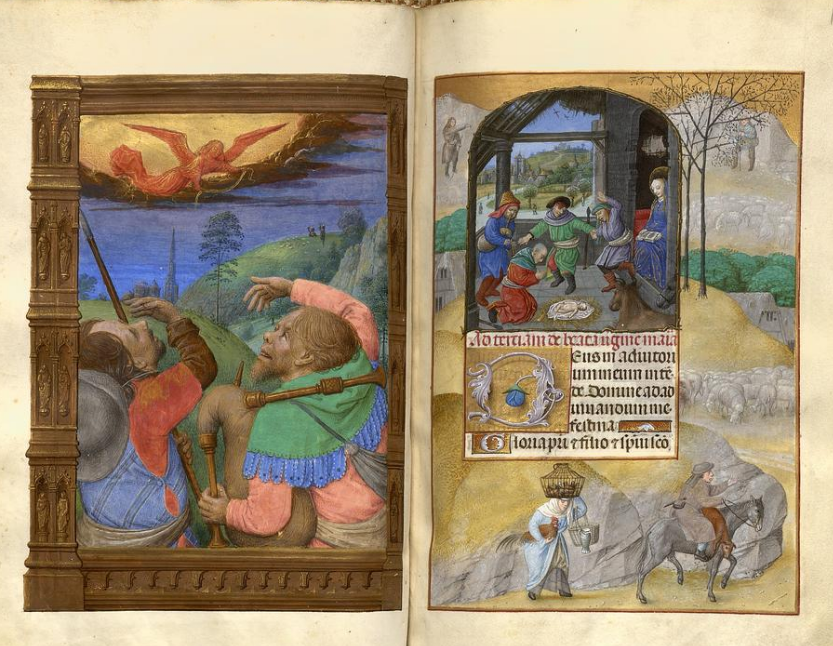 Ad terciam de beata virgine maria
Deus in adiutori
um meum in te⁊
de. Domine ad ad
iuuandum me
festina
Gloria pri ⁊ filio ⁊ spui sco